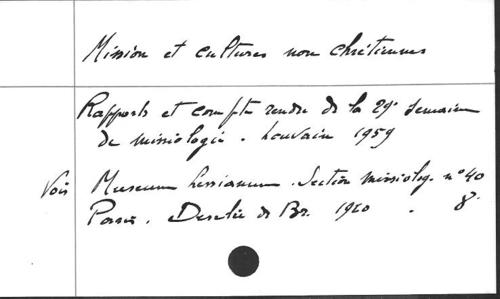 Mission et cultures non chrétiennes
Rapports et compte rendu de la 29e semaine
de missiologie. Louvain 1959
Voir Museum Lessianum. Section missiolog. n° 40
Paris. Desclée de Br. 1960 . 8°